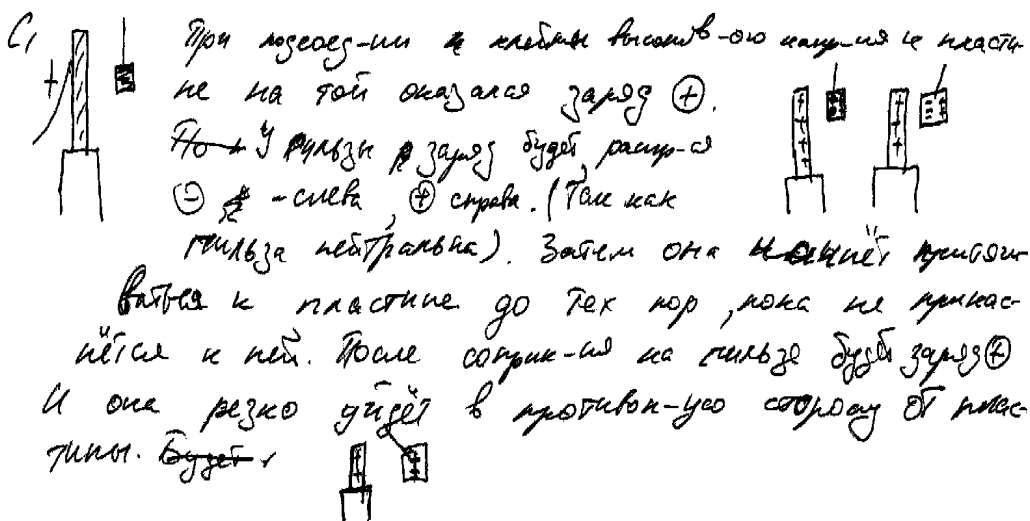 С1 При подсоед-нии к клеймы высоков-ого напр-ия к пласти-
не на той оказался заряд ⊕.
У гильзы заряд будет распр-ся
⊖ - слева, ⊕ справа. (Так как
гильза нейтральна). Затем она начнёт притяги-
ваться к пластине до тех пор, пока не прикас-
нётся к ней. После соприк-ия на гильзе будет заряд ⊕
И она резко уйдёт в противоп-ую сторону от плас-
тины.